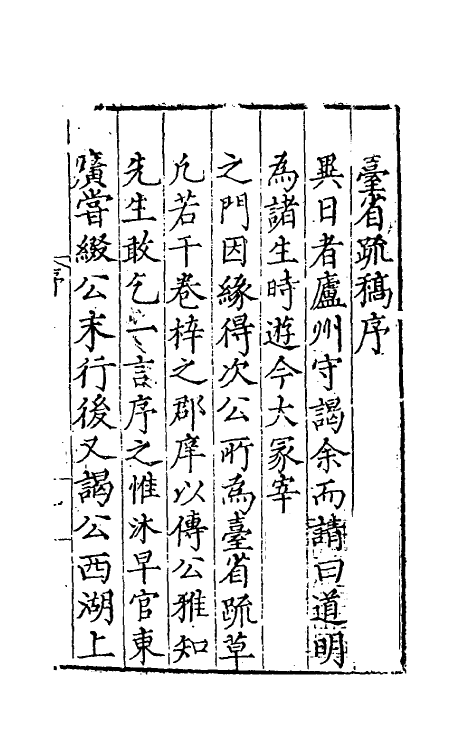 臺省疏稿序
異日者廬州守謁余而請曰道明
為諸生時遊今大冢宰
之門因緣得次公所為臺省疏草
凡若干卷梓之郡庠以傳公雅知
先生敢乞一言序之惟沐早官東
廣嘗綴公末行後又謁公西湖上
序